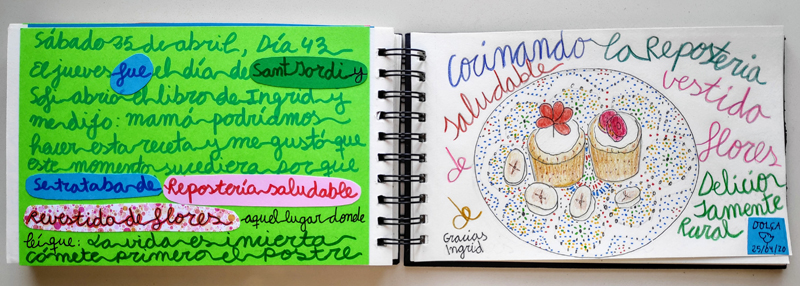 Sábado 25 de abril, Día 43
El jueves fue el día de Sant Jordi y
Sofi abrió el libro de Ingrid y
me dijo: mamá podríamos
hacer esta receta y me gustó que
este momento sucediera por que
se trataba de Repostería saludable
Revestido de flores aquel lugar donde
leí que: La vida es incierta
cómete primero el postre
Cocinando la Reposteria
saludable
vestida
de
flores
de
Deliciosamente
Rural
Gracias
Ingrid
DOLGA
25/04/20